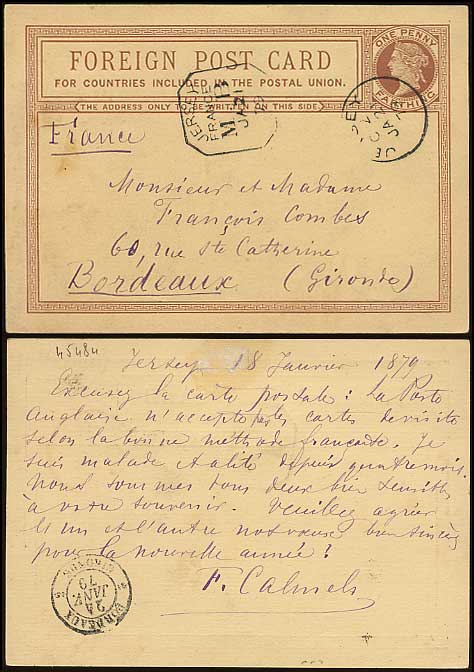 FOREIGN POST CARD
FOR COUNTRIES INCLUDED IN THE POSTAL UNION.
THE ADDRESS ONLY TO BE WRITTEN ON THIS SIDE
ONE PENNY
FARTHING
JERSEY
FRANCE
M B
JA 21
79
France
Monsieur et Madame
François Combes
60, rue Ste Catherine
Bordeaux (Gironde)
45484
Jersey 18 Janvier 1879
Excusez la carte postale : La Poste
Anglaise n'accepte pas les cartes de visite
selon la bonne méthode française. Je
suis malade et alité depuis quatre mois.
Nous sommes tous deux bien sensibles
à votre souvenir. Veuillez agréer
l'un et l'autre nos vœux bien sincères
pour la nouvelle année !
F. Calmels
BORDEAUX
24
JANV
79
GIRONDE